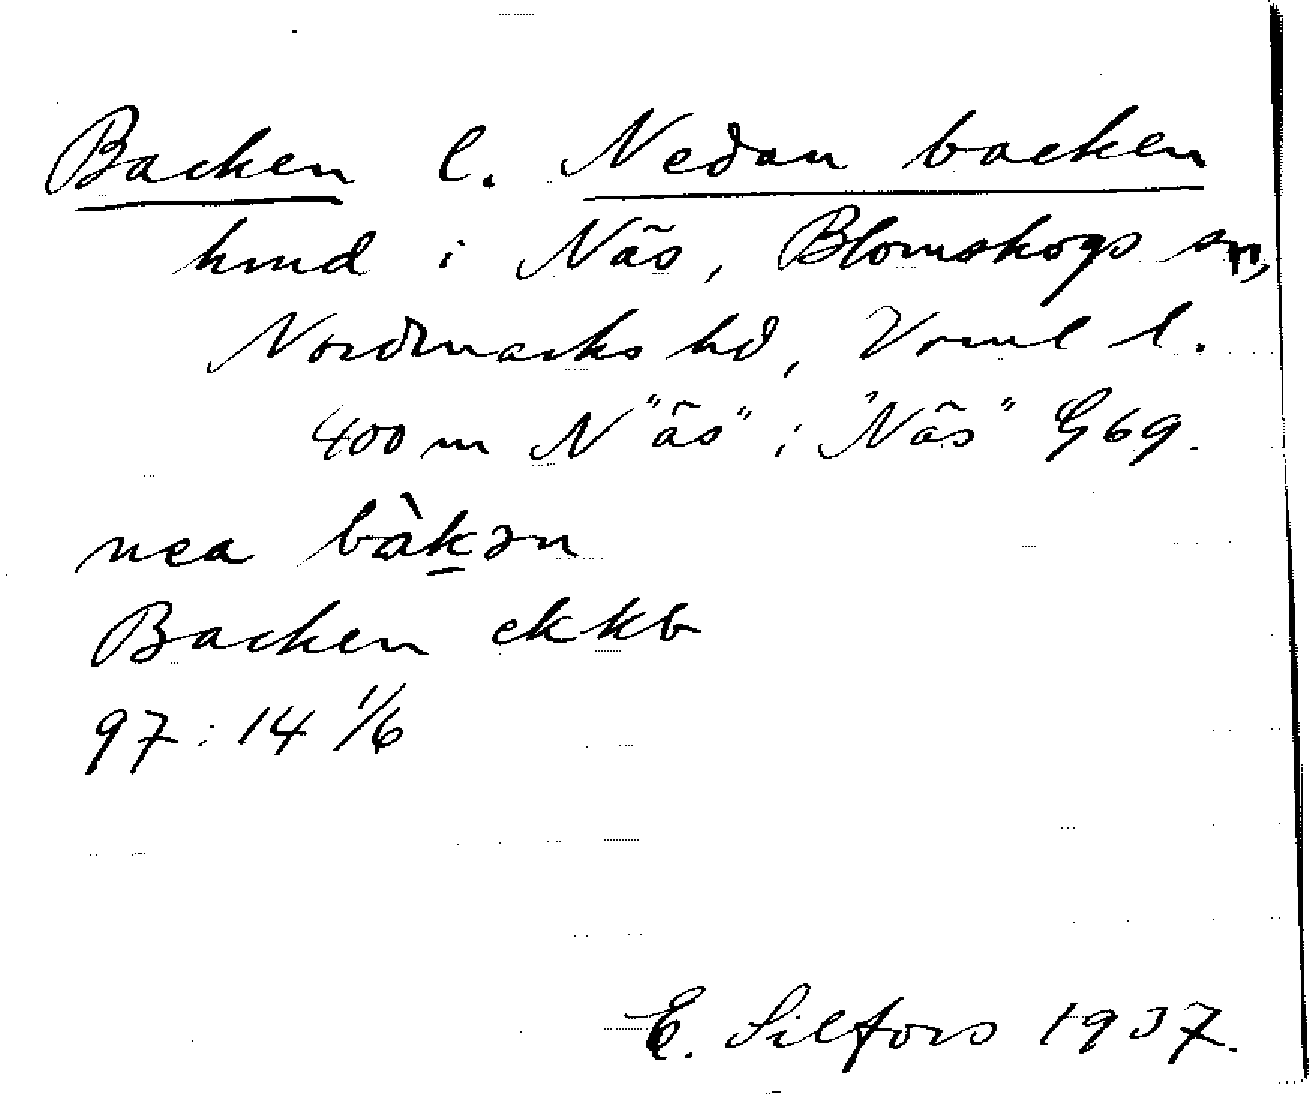 Backen l. Nedan backen
hmd i Näs, Blomskogs sn,
Nordmarks hd, Vrml l.
400 m N "äs" i "Näs" G 69.
nea bàkən
Backen ekkb
97:14 1/6
E. Silfors 1937.